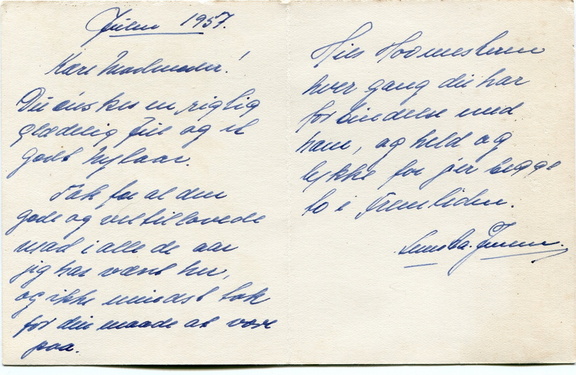 Julen 1957.
Kære Madmoder!
De ønskes en rigtig
glædelig Jul og et
godt Nytaar.
Tak for al den
gode og veltillavede
mad i alle de aar
jeg har været her,
og ikke mindst tak
for din maade at være
paa.
Hils Hovmesteren
hver gang du har
forbindelse med
ham, og held og
lykke for jer begge
to i Fremtiden.